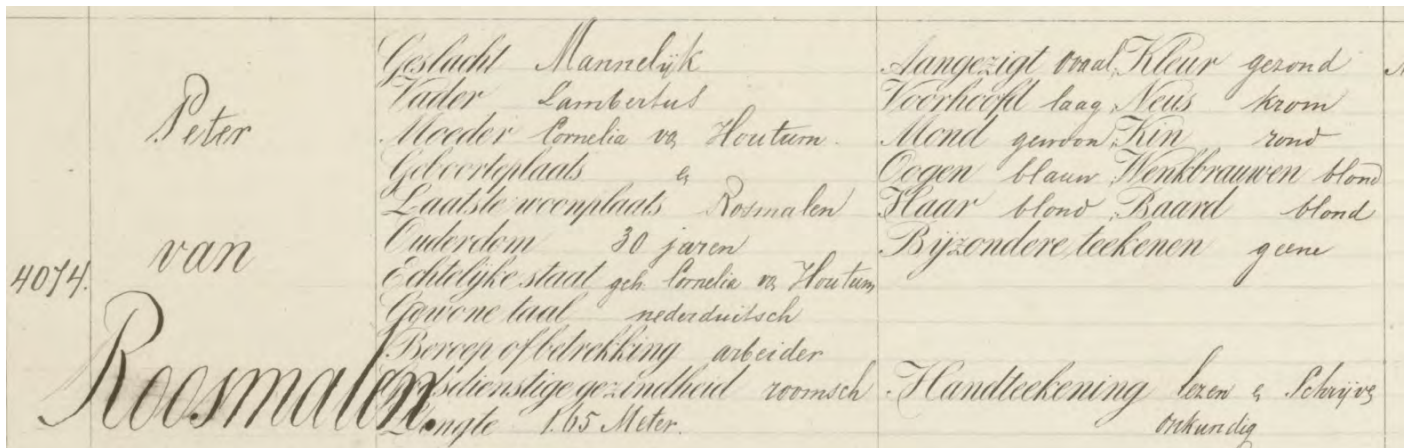 4074.
Peter
van
Roosmalen.
Geslacht Mannelijk
Vader Lambertus
Moeder Cornelia va Houtum.
Geboorteplaats &
Laatste woonplaats Rosmalen
Ouderdom 30 jaren
Echtelijke staat geh. Cornelia va Houtum
Gewone taal nederduitsch
Beroep of betrekking arbeider
Godsdienstige gezindheid roomsch
Lengte 1.65 Meter.
Aangezigt ovaal, Kleur gezond
Voorhoofd laag, Neus krom
Mond gewoon, Kin rond
Oogen blauw, Wenkbrauwen blond
Haar blond, Baard blond
Bijzondere teekenen geene
Handteekening lezen & Schrijve
onkundig